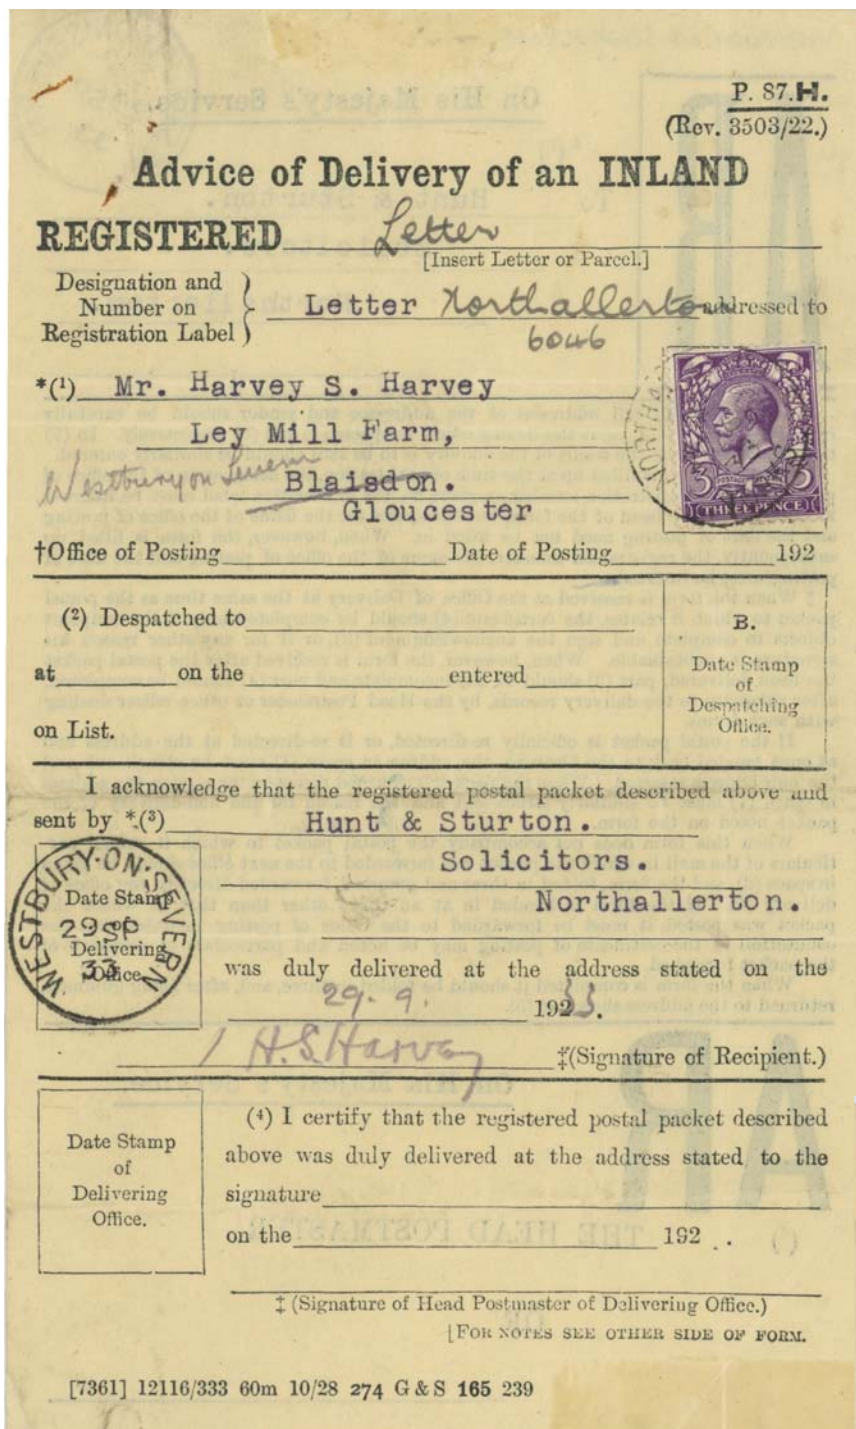 P. 87.H.
(Rev. 3503/22.)
Advice of Delivery of an INLAND
REGISTERED Letter
[Insert Letter or Parcel.]
Designation and
Number on
Registration Label
Letter Northallerton addressed to
6046
*(1) Mr. Harvey S. Harvey
Ley Mill Farm,
Westbury on Severn
Blaisdon.
Gloucester
THREE PENCE
†Office of Posting Date of Posting 192
(2) Despatched to
at on the entered
on List.
B.
Date Stamp
of
Despatching
Office.
I acknowledge that the registered postal packet described above and
sent by *(3) Hunt & Sturton.
Solicitors.
Northallerton.
WESTBURY-ON-SEVERN
29 SP
33
Date Stamp
of
Delivering
Office.
was duly delivered at the address stated on the
29. 9. 1933.
H.S. Harvey ‡(Signature of Recipient.)
Date Stamp
of
Delivering
Office.
(4) I certify that the registered postal packet described
above was duly delivered at the address stated to the
signature
on the 192 .
‡ (Signature of Head Postmaster of Delivering Office.)
[FOR NOTES SEE OTHER SIDE OF FORM.
[7361] 12116/333 60m 10/28 274 G & S 165 239